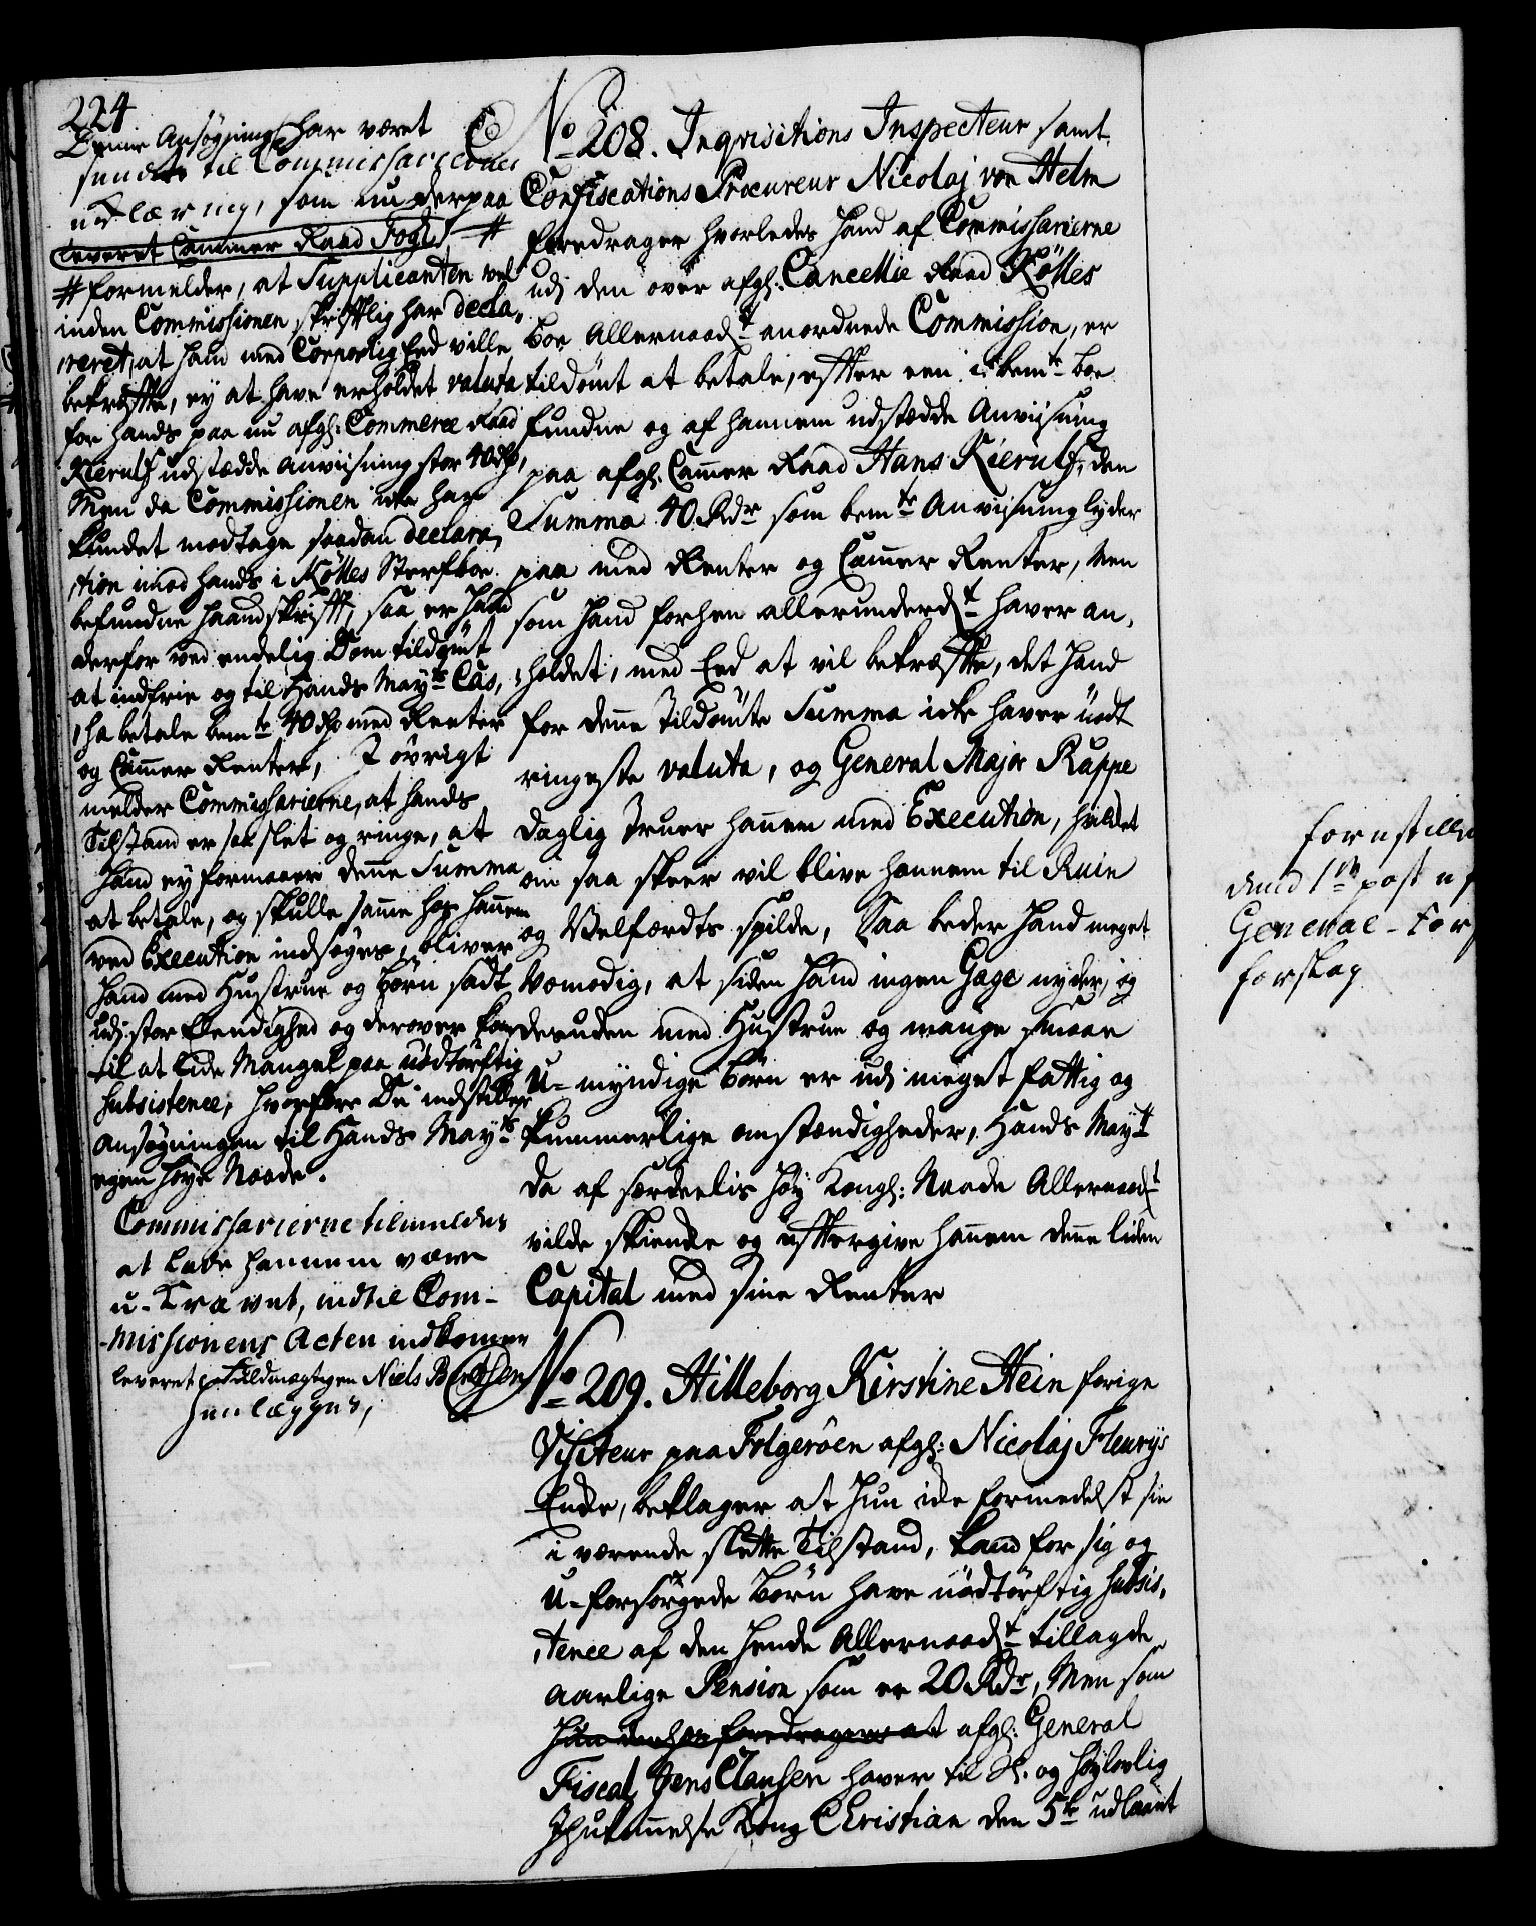 224
Denne Ansøgning har været
sendt til Commissariernes
erklæring, som nu derpaa
leveret Cammer Raad Fogh #
# formelder, at Supplicanten vel
inden Commissionen skrifftlig har decla-
reret, at hand med Corporlig Eed ville
bekræffte, ey at have erholdet valuta
for hands paa nu afgl: Commerce Raad
Kierulf udstædde Anviisning stor 40 rdr,
Men da Commissionen icke har
kundet modtage saadan declara-
tion imod hands i Köttes Sterfboe
befundne haandskrifft, saa er hand
derfor ved endelig Dom tildømt
at indfrie og til Hands Mayts Cas-
sa betale bemte 40 rdr med Renter
og Cammer Renter, I øvrigt
melder Commissarierne, at hands
Tilstand er saa slet og ringe, at
hand ey formaaer denne Summa
at betale, og skulle samme hos hannem
ved Execution indsøges, bliver
hand med Hustrue og Børn sadt
udj stor Elendighed og derover
til at lide Mangel paa nødtørftig
subsistence, hvorfore De indstiller
Ansøgningen til Hands Mayts
egen høye Naade.
Commissarierne tilmeldes
at lade hannem være
u-Krævet, indtil Com-
-missionens Acten indkommer
leveret Fuldmægtigen Niels Berthsen
henlægges,
No 208. Inqvisitions Inspecteur samt
Confiscations Procureur Nicolaj von Helm
foredrager hvorledes hand af Commissarierne
udj den over afgl: Cancellie Raad Köttes
Boe Allernaadt anordnede Commission, er
tildømt at betale, effter een i bemte Boe
funden og af hannem udstædde Anviisning
paa afgl. Cammer Raad Hans Kierulf, den
Summa 40 Rdr som bemte Anviisning lyder
paa med Renter og Cammer Renter, Men
som hand forhen allerunderdt haver an-
holdet, med Eed at vil bekræffte, det hand
for denne Tildømte Summa icke haver nödt
ringeste valuta, og General Major Rappe
daglig truer hannem med Execution, hvilcket
om saa skeer vil blive hannem til Ruin
og Velfærdts spilde, Saa beder hand meget
Vemodig, at siden hand ingen Gage nyder, og
desuden med Hustrue og mange smaae
U-myndige Børn er udj meget fattig og
kummerlige omstændigheder, Hands Mayt
da af særdeelis høy Kongl: Naade Allernaadt
vilde skiencke og efftergive hannem denne liden
Capital med sine Renter
No 209. Hilleborg Kirstine Hein forige
Visiteur paa Folgerøen afgl: Nicolaj Fleurys
Encke, beklager at hun icke formedelst sin
i værende slette Tilstand, kand for sig og
U-forsörgede Börn have nödtörftig subsis-
tence af den hende Allernaadt tillagde
aarlige Pension som er 20 Rdr, Men som
hun foredrager at afgl: General
Fiscal Jens Clausen haver til Sl. og høylovlig
Ihukommelse Kong Christian den 5te udlaant
forestille
General-For
forslag